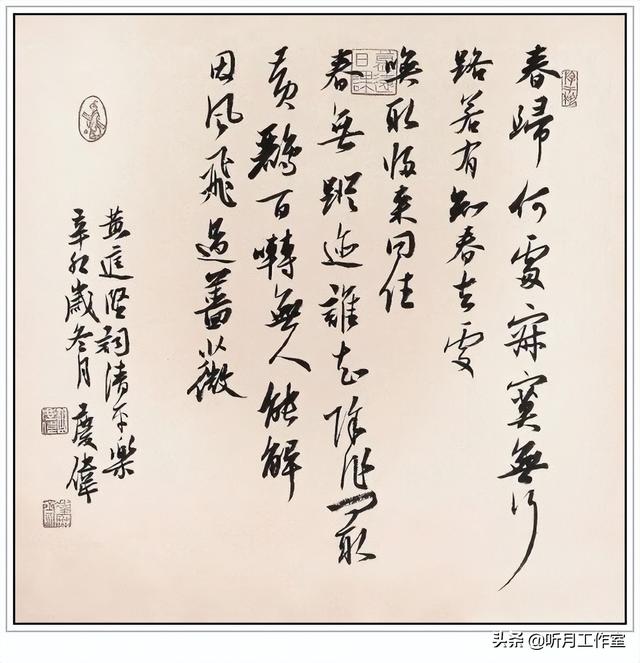 春歸何處寂寞無行
路若有知春去處
喚取歸來同住
春無蹤迹誰知除非問取
黃鸝百囀無人能解
因風飛過薔薇
黃庭堅詞清平樂
辛卯歲冬月慶偉
头条 @听月工作室